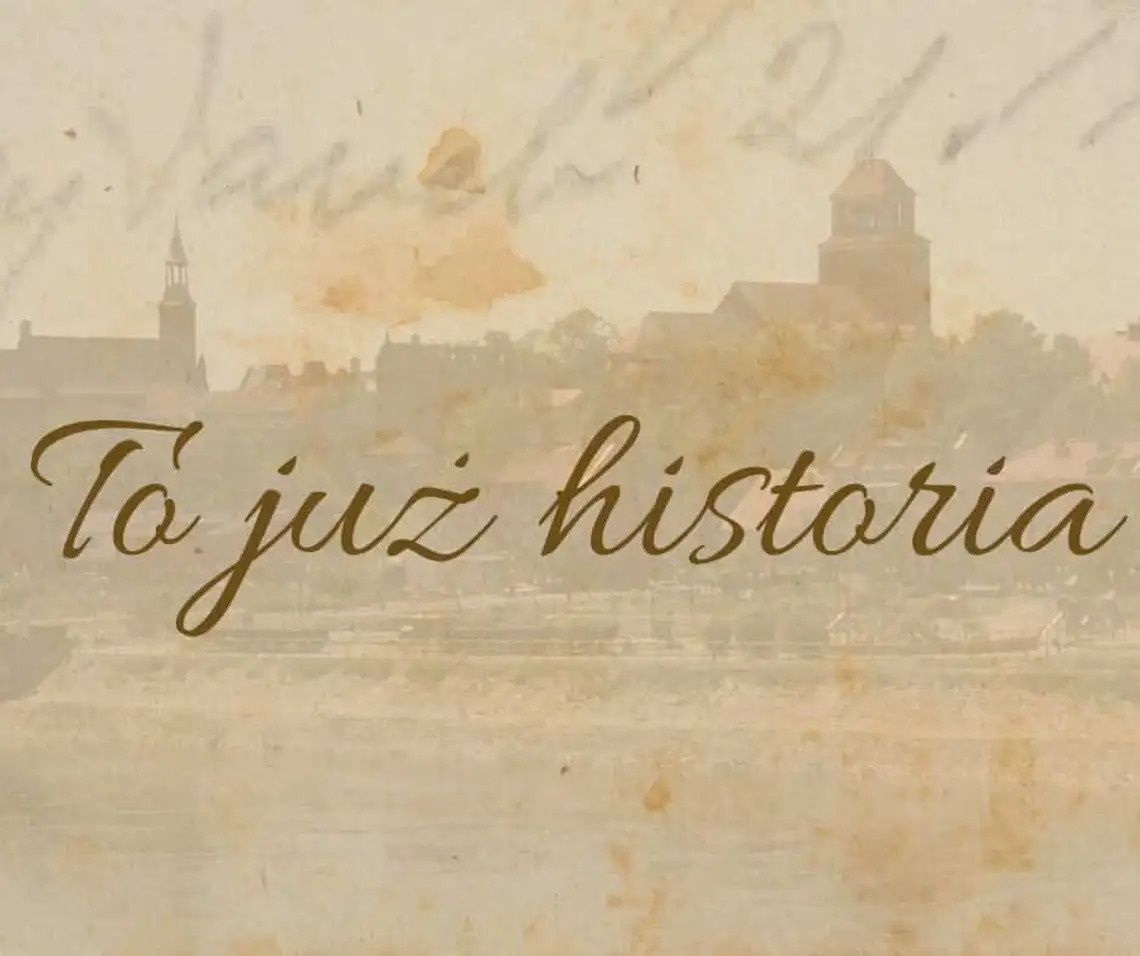 To już historia